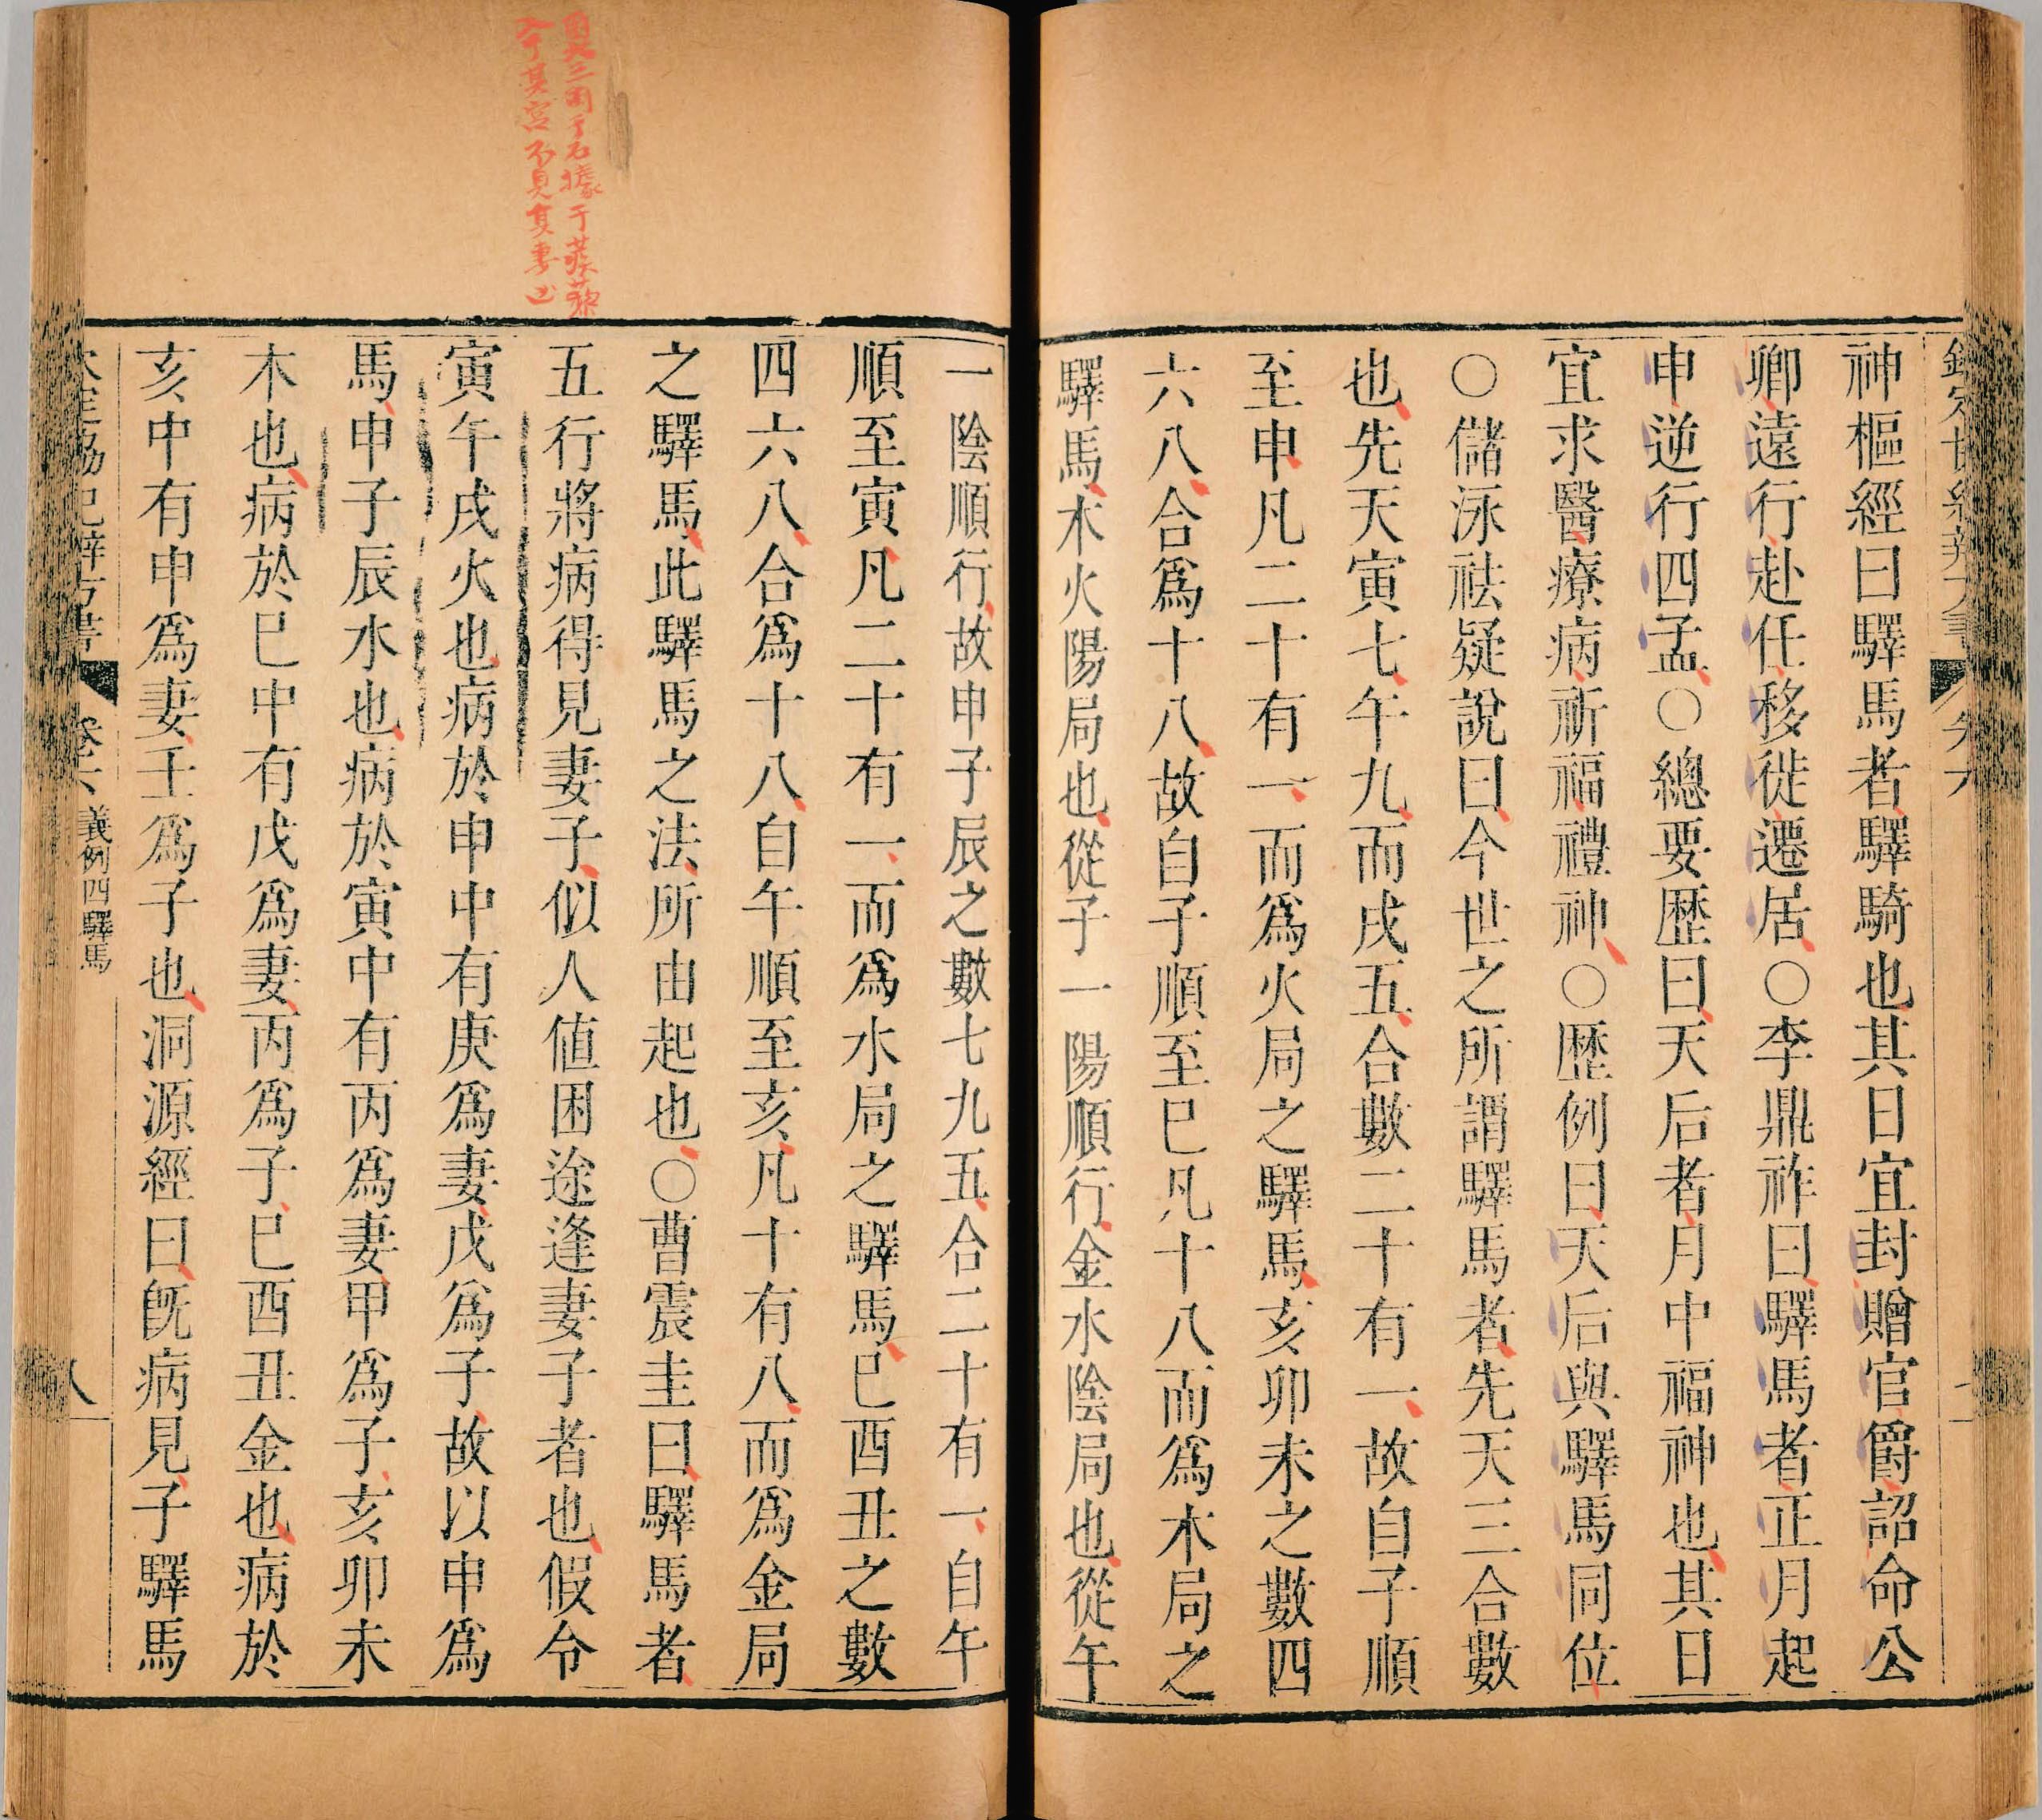 神樞經曰驛馬者驛騎也其日宜封贈官爵詔命公
卿遠行赴任移徙遷居○李鼎祚曰驛馬者正月起
申逆行四孟○總要歷曰天后者月中福神也其日
宜求醫療病祈福禮神○歷例曰天后與驛馬同位
○儲泳祛疑說曰今世之所謂驛馬者先天三合數
也先天寅七午九而戌五合數二十有一故自子順
至申凡二十有一而爲火局之驛馬亥卯未之數四
六八合爲十八故自子順至巳凡十八而爲木局之
驛馬木火陽局也從子一陽順行金水陰局也從午
一陰順行故申子辰之數七九五合二十有一自午
順至寅凡二十有一而爲水局之驛馬巳酉丑之數
四六八合爲十八自午順至亥凡十有八而爲金局
之驛馬此驛馬之法所由起也○曹震圭曰驛馬者
五行將病得見妻子似人値困途逢妻子者也假令
寅午戌火也病於申中有庚爲妻戊爲子故以申爲
馬申子辰水也病於寅中有丙爲妻甲爲子亥卯未
木也病於巳中有戊爲妻丙爲子巳酉丑金也病於
亥中有申爲妻壬爲子也洞源經曰旣病見子驛馬
協 方書 卷六 義例四驛馬 八
困 三困于石據于蒺藜
入于其宮不見其妻凶